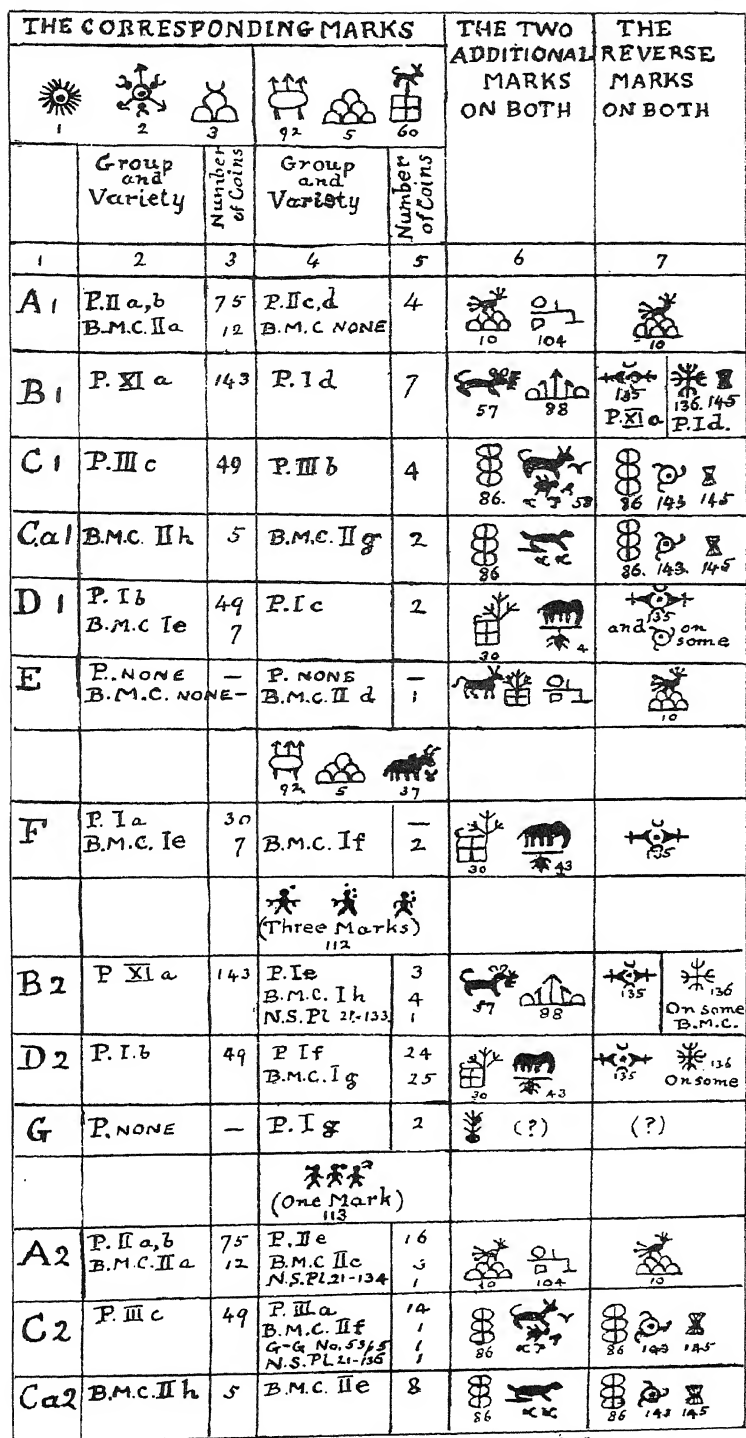 THE CORRESPONDING MARKS
THE TWO ADDITIONAL MARKS ON BOTH
THE REVERSE MARKS ON BOTH
1 2 3 92 5 60
Group and Variety
Number of Coins
Group and Variety
Number of Coins
1 2 3 4 5 6 7
A1 P.IIa,b 75 P.IIc,d 4
B.M.C.IIa 12 B.M.C NONE
10 104 10
B1 P. XI a 143 P.Id 7
57 98 135 136. 145
P.XI a P.Id.
C1 P.III c 49 P.III b 4
86. 58 86 143 145
Ca1 B.M.C. II h 5 B.M.C. II g 2
86 86. 143. 145
D1 P. Ib 49 P.Ic 2
B.M.C Ie 7
30 4 135
and on some
E P. NONE — P. NONE —
B.M.C. NONE — B.M.C. II d 1
10
92 5 37
F P. Ia 30 —
B.M.C. Ie 7 B.M.C. If 2
30 43 135
(Three Marks)
112
B2 P XI a 143 P.Ie 3
B.M.C. Ih 4
N.S.Pl 21-133 1
57 98 135 136
On some B.M.C.
D2 P. I.b 49 P If 24
B.M.C. Ig 25
30 43 135 136
On some
G P. NONE — P. I g 2
(?) (?)
(One Mark)
113
A2 P. II a,b 75 P. II e 16
B.M.C.IIa 12 B.M.C IIc
N.S.Pl 21-134 1
10 104 10
C2 P. III c 49 P. III a 14
B.M.C. IIf 1
G-G No. 1
N.S.PL 21-136 1
86 86 143 145
Ca2 B.M.C. II h 5 B.M.C. IIe 8
86 86 143 145